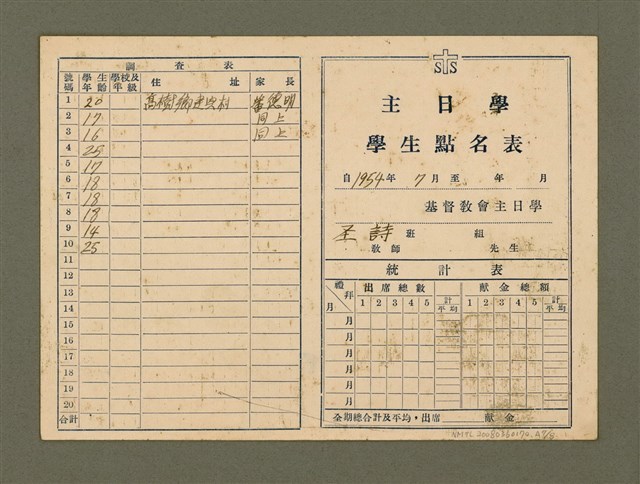 調查表
號碼 學生年齡 學校及年級 住址 家長
1 20 高樹鄉建興村 德明
2 17 同上
3 16 同上
4 25
5 17
6 18
7 18
8 18
9 14
10 25
11
12
13
14
15
16
17
18
19
20
合計
S S
主日學
學生點名表
自1954年7月至 年 月
基督教會主日學
圣詩班 組
教師 先生
統計表
禮拜 出席總數 献金總額
月 1 2 3 4 5 計平均 1 2 3 4 5 計平均
月
月
月
月
月
月
全期總合計及平均・出席 献金
NMTL20080260170